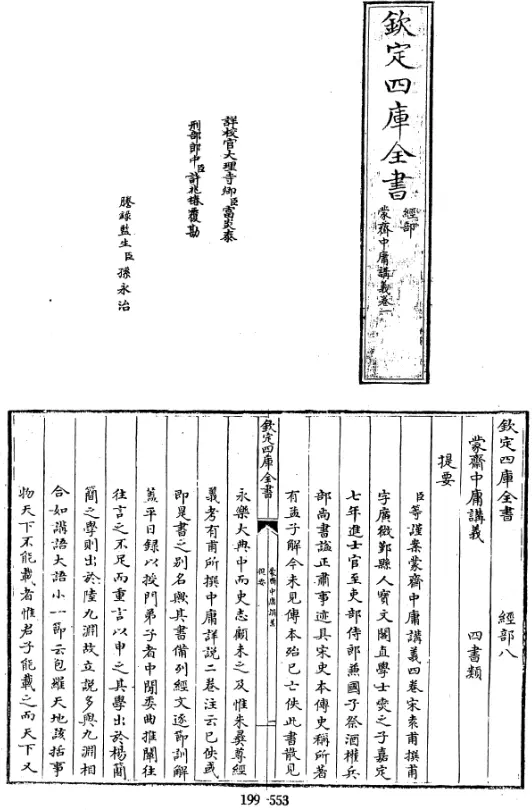 欽定四庫全書
經部
蒙齋中庸講義卷一
詳校官大理寺卿臣富炎泰
刑部郎中臣許兆椿覆勘
謄錄監生臣孫永治
欽定四庫全書 經部八
蒙齋中庸講義 四書類
提要
臣等謹案蒙齋中庸講義四卷宋袁甫撰甫
字廣微鄞縣人寶文閣直學士燮之子嘉定
七年進士官至吏部侍郎兼國子祭酒權兵
部尚書諡正肅事迹具宋史本傳史稱所著
有孟子解今未見傳本殆已亡佚此書散見
欽定四庫全書
蒙齋中庸講義
提要
一
永樂大典中而史志顧未之及惟朱彝尊經
義考有甫所撰中庸詳說二卷注云已佚或
即是書之別名歟其書備列經文逐節訓解
蓋平日錄以授門弟子者中間委曲推闡往
往言之不足而重言以申之其學出於楊簡
簡之學則出於陸九淵故立說多與九淵相
合如講語大語小一節云包羅天地該括事
物天下不能載者惟君子能載之而天下又
199-553